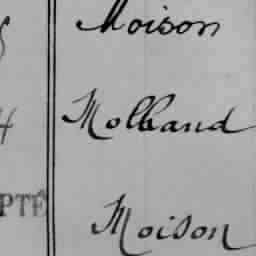 Moison
Molband
PTÉ Moison